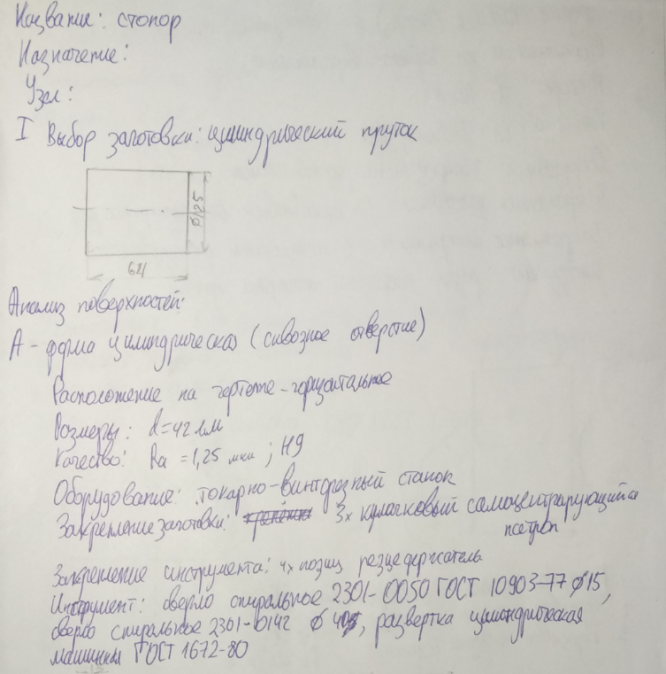 Название: стопор
Назначение:
Узел:
I Выбор заготовки: цилиндрический пруток
Ø125
64
Анализ поверхностей:
А - форма цилиндрическая (сквозное отверстие)
Расположение на чертеже - горизонтальное
Размеры: d=42 мм
Качество: Ra = 1,25 мкм ; H9
Оборудование: токарно-винторезный станок
Закрепление заготовки: 3х кулачковый самоцентрирующийся
патрон
Закрепление инструмента: 4х позиц резцедержатель
Инструмент: сверло спиральное 2301-0050 ГОСТ 10903-77 Ø15,
сверло спиральное 2301-0142 Ø 40, развертка цилиндрическая
машинная ГОСТ 1672-80